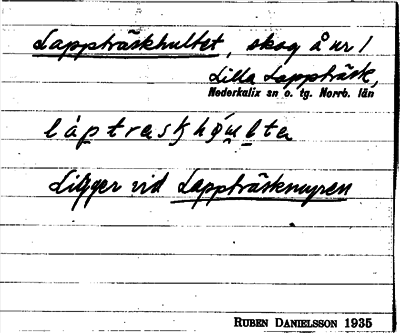 Lappträskhultet, skog å nr 1
Lilla Lappträsk,
Nederkalix sn o. tg. Norrb. län
Ligger vid Lappträskmyren
RUBEN DANIELSSON 1935